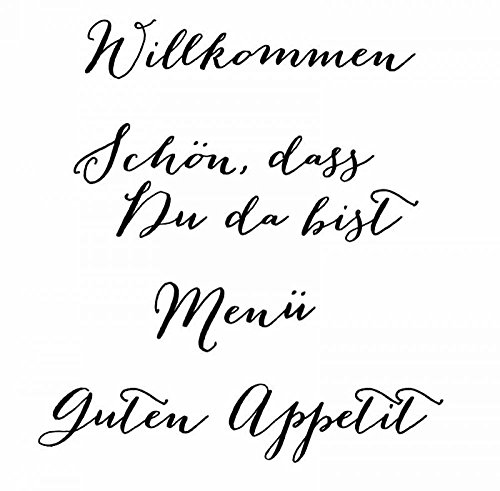 Willkommen
Schön, dass
Du da bist
Menü
Guten Appetit